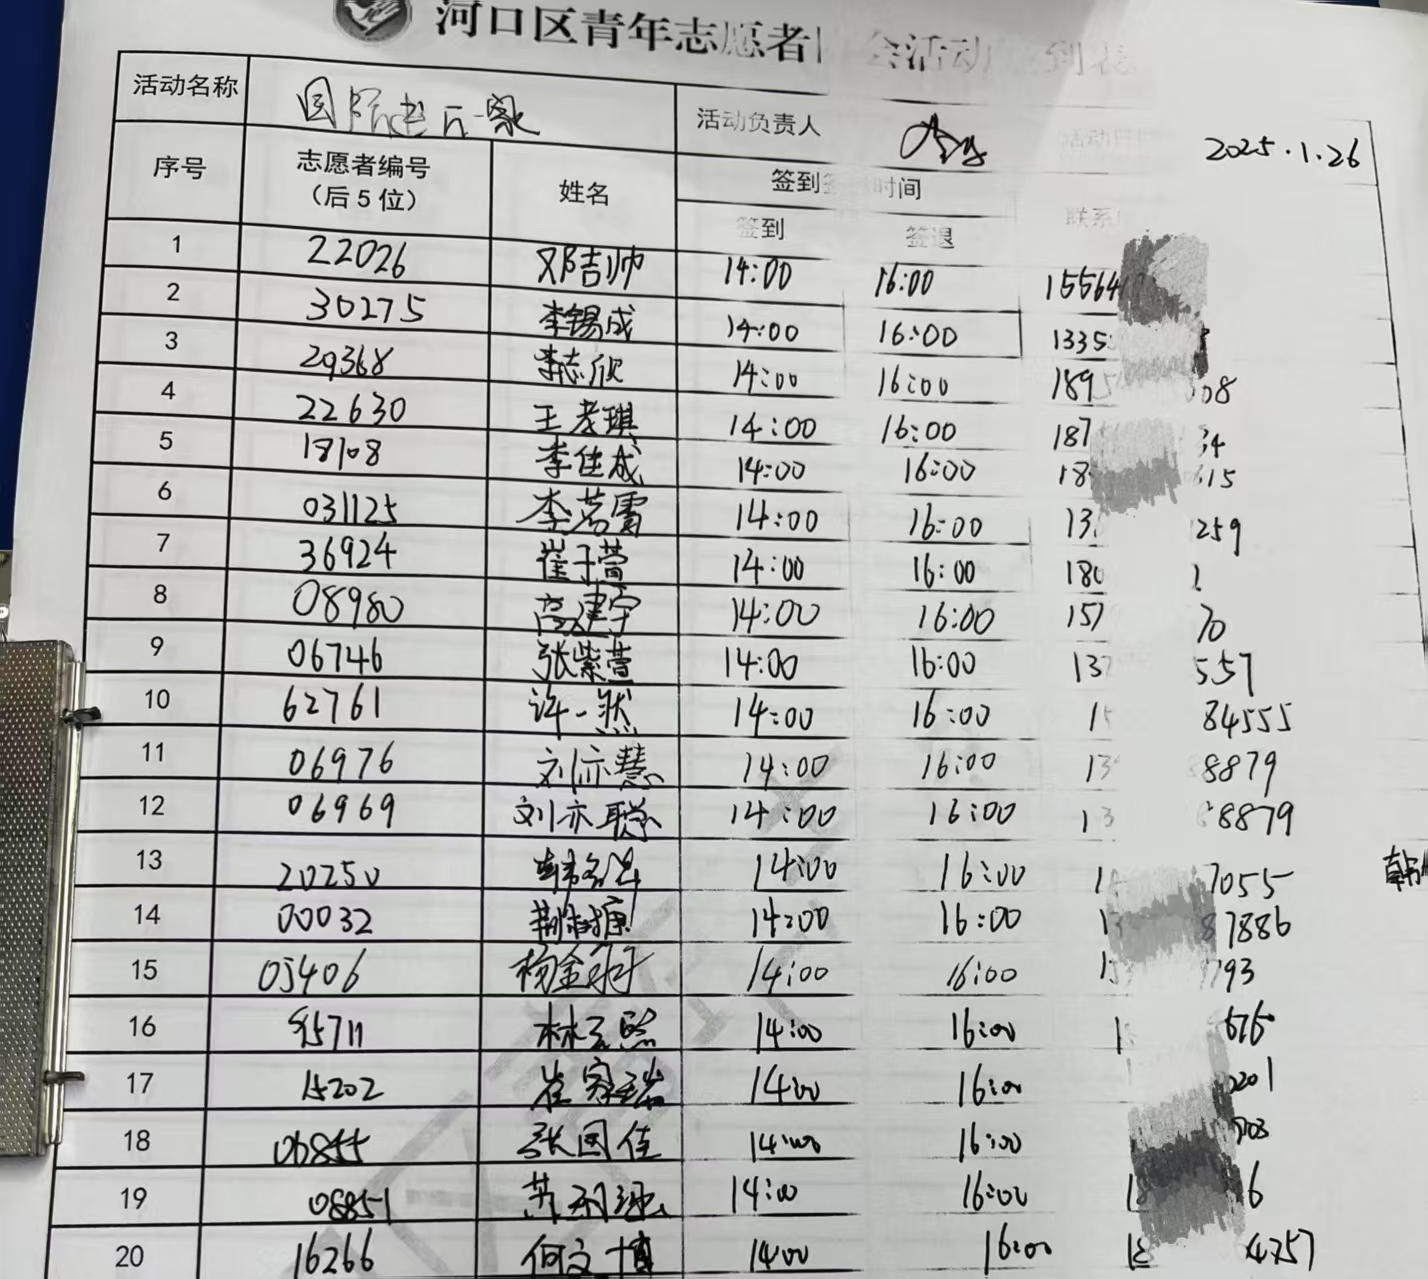 河口区青年志愿者 会活动 到表
活动名称 活动负责人 2025.1.26
序号 志愿者编号 姓名 签到 时间
（后5位） 签到 签退 联系
1 22026 邓吉帅 14:00 16:00 15564
2 30275 李锡成 14:00 16:00 1335
3 29368 李志欣 14:00 16:00 189 08
4 22630 王孝琪 14:00 16:00 187 34
5 18108 李佳成 14:00 16:00 18 615
6 031125 李若雪 14:00 16:00 13 259
7 36924 崔子萱 14:00 16:00 180
8 08980 高建宇 14:00 16:00 157 70
9 06746 张紫萱 14:00 16:00 137 557
10 62761 许一然 14:00 16:00 1 84555
11 06976 刘亦慧 14:00 16:00 13 8879
12 06969 刘亦聪 14:00 16:00 13 8879
13 20250 14:00 16:00 1 7055 韩
14 00032 14:00 16:00 1 87886
15 05406 14:00 16:00 1 793
16 14:00 16:00 1
17 15202 崔家瑞 14:00 16:00 201
18 张国佳 14:00 16:00
19 08851 14:00 16:00 18 6
20 16266 何文博 14:00 16:00 18 4757